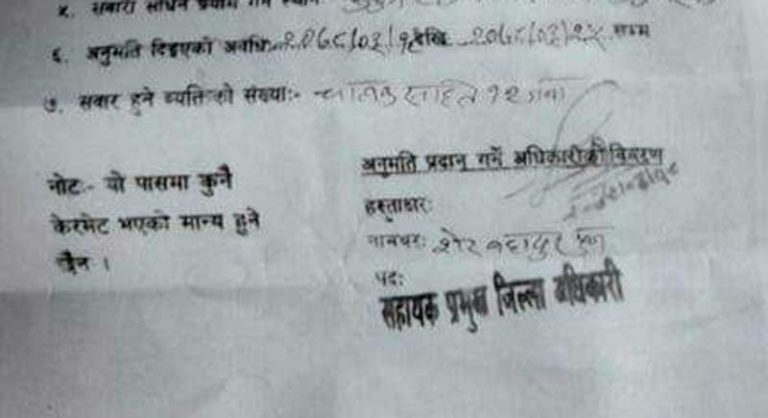 ५. सवारी साधन प्रयोग गर्ने स्थानः
६. अनुमति दिइएको अवधिः- २०७८/०३/१८ देखि २०७८/०३/२५ सम्म
७. सवार हुने व्यक्तिको संख्याः- चालक सहित १२ जना
अनुमति प्रदान गर्ने अधिकारीको विवरण
नोटः- यो पासमा कुनै
केरमेट भएको मान्य हुने
छैन ।
हस्ताक्षरः
नामथरः शेर बहादुर
पदः
सहायक प्रमुख जिल्ला अधिकारी